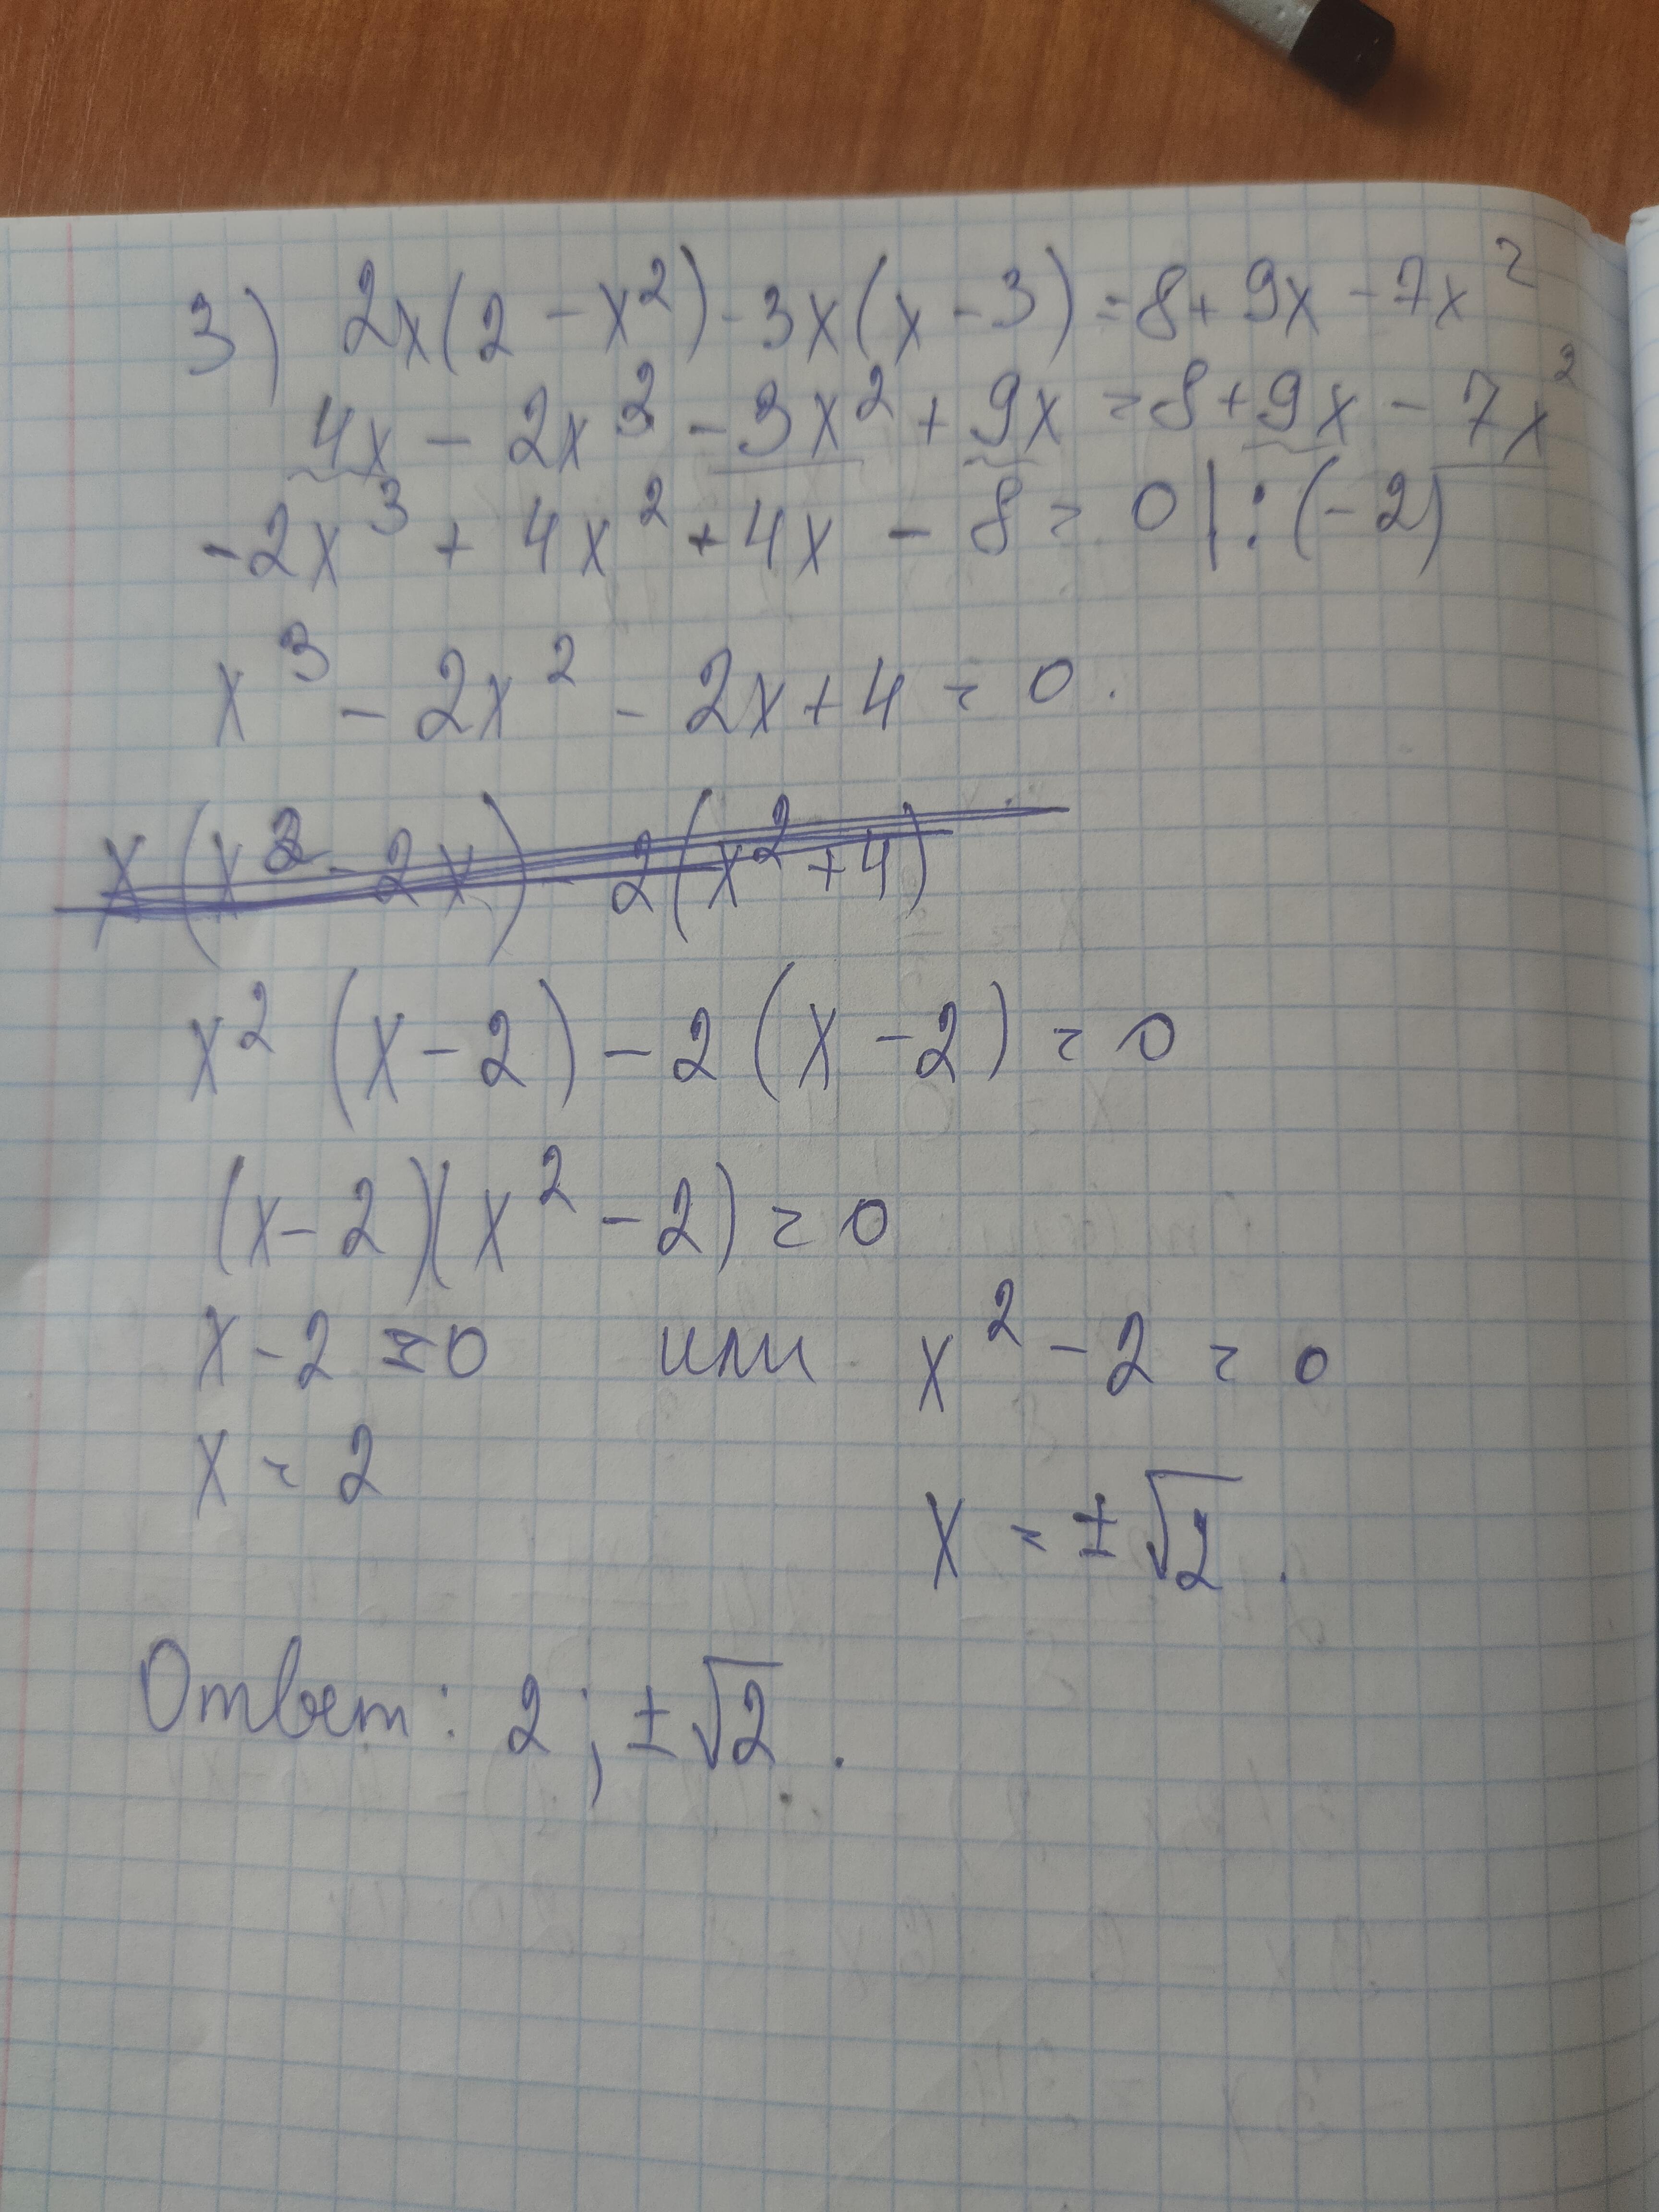 3) 2x(2 - x²) - 3x(x - 3) = 8 + 9x - 7x²
4x - 2x³ - 3x² + 9x = 8 + 9x - 7x²
-2x³ + 4x² + 4x - 8 = 0 | : (-2)
x³ - 2x² - 2x + 4 = 0.
x(x² - 2x) - 2(x² + 4)
x² (x - 2) - 2 (x - 2) = 0
(x - 2)(x² - 2) = 0
x - 2 = 0 или x² - 2 = 0
x = 2
x = ±√2.
Ответ: 2; ±√2.